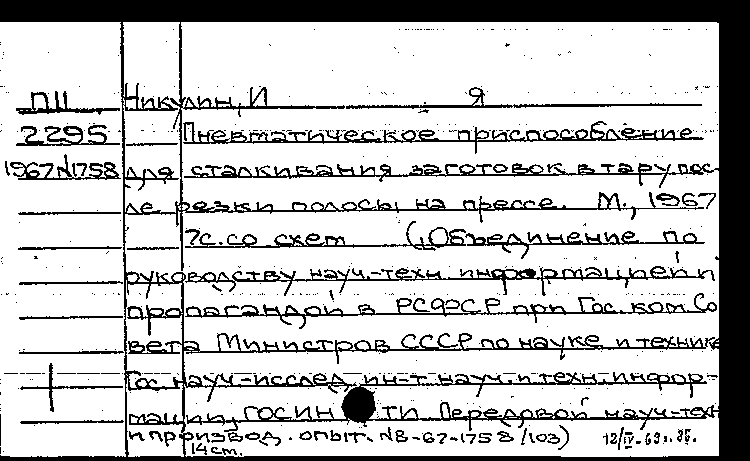 П11 Никулин, И Я
2295 Пневматическое приспособление
1967 №1758 для сталкивания заготовок в тару пос-
ле резки полосы на прессе. М., 1967
7с. со схем („Объединение по
руководству науч.-техн. информацией и
пропагандой в РСФСР при Гос. ком Со
вета Министров СССР по науке и технике
Гос науч-исслед ин-т науч. и техн. инфор-
мации, ГОСИНТИ Передовой науч-техн
и производ. опыт. №8-67-1758/103) 12/IV-69г.
14 cm.